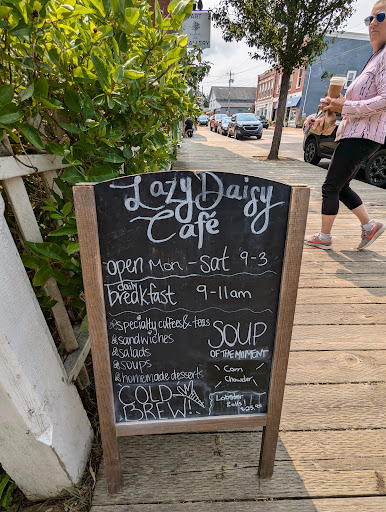 Lazy Daisy
Café
open Mon - Sat 9-3
daily
breakfast 9-11am
specialty coffees & teas
sandwiches
salads
soups
homemade desserts
COLD
BREW!!
SOUP
OF THE MOMENT
Corn
Chowder
Lobster
Rolls!